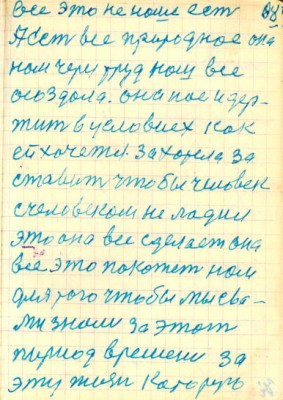 все это не наше ест
А ест все природное она
нам чериз труд наш все
создола. она нас и дер-
жит в условиех как
ей хочется. захотела за
ставит чтобы человек
с человеком не ладил
это она все сделает она
всё это покожет нам
для того чтобы мы сва-
ми знали за этот
период времени за
эту жизн которую